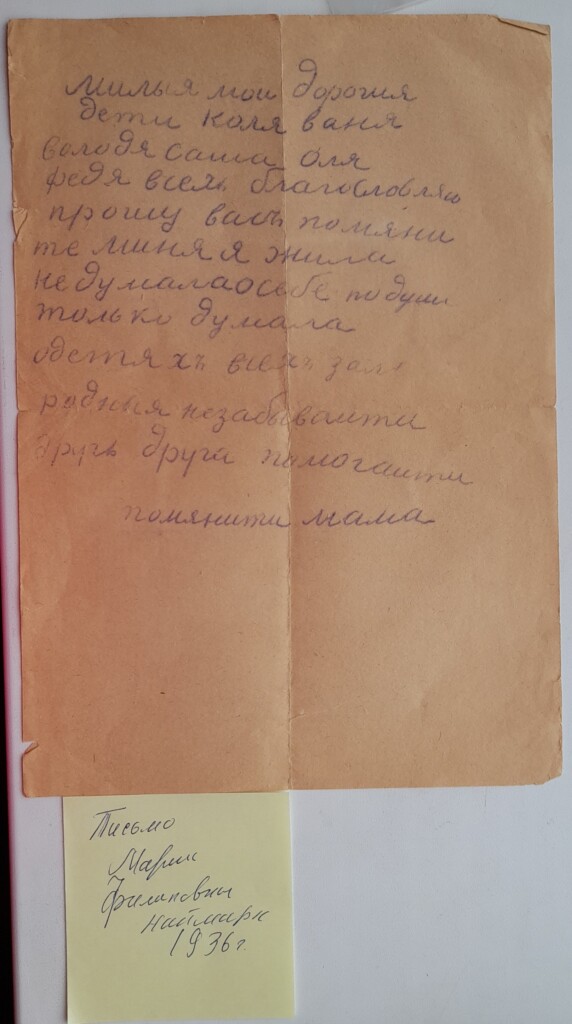 милыя мои дорогия
дети коля ваня
володя саша оля
федя всехъ благословляю
прошу васъ помяни
те миня я жила
не думала о себе
только думала
о детяхъ всехъ
родныя незабываити
другъ друга памогаити
помянити мама
Письмо
Марии
Филиповны
Наймарк
1936 г.